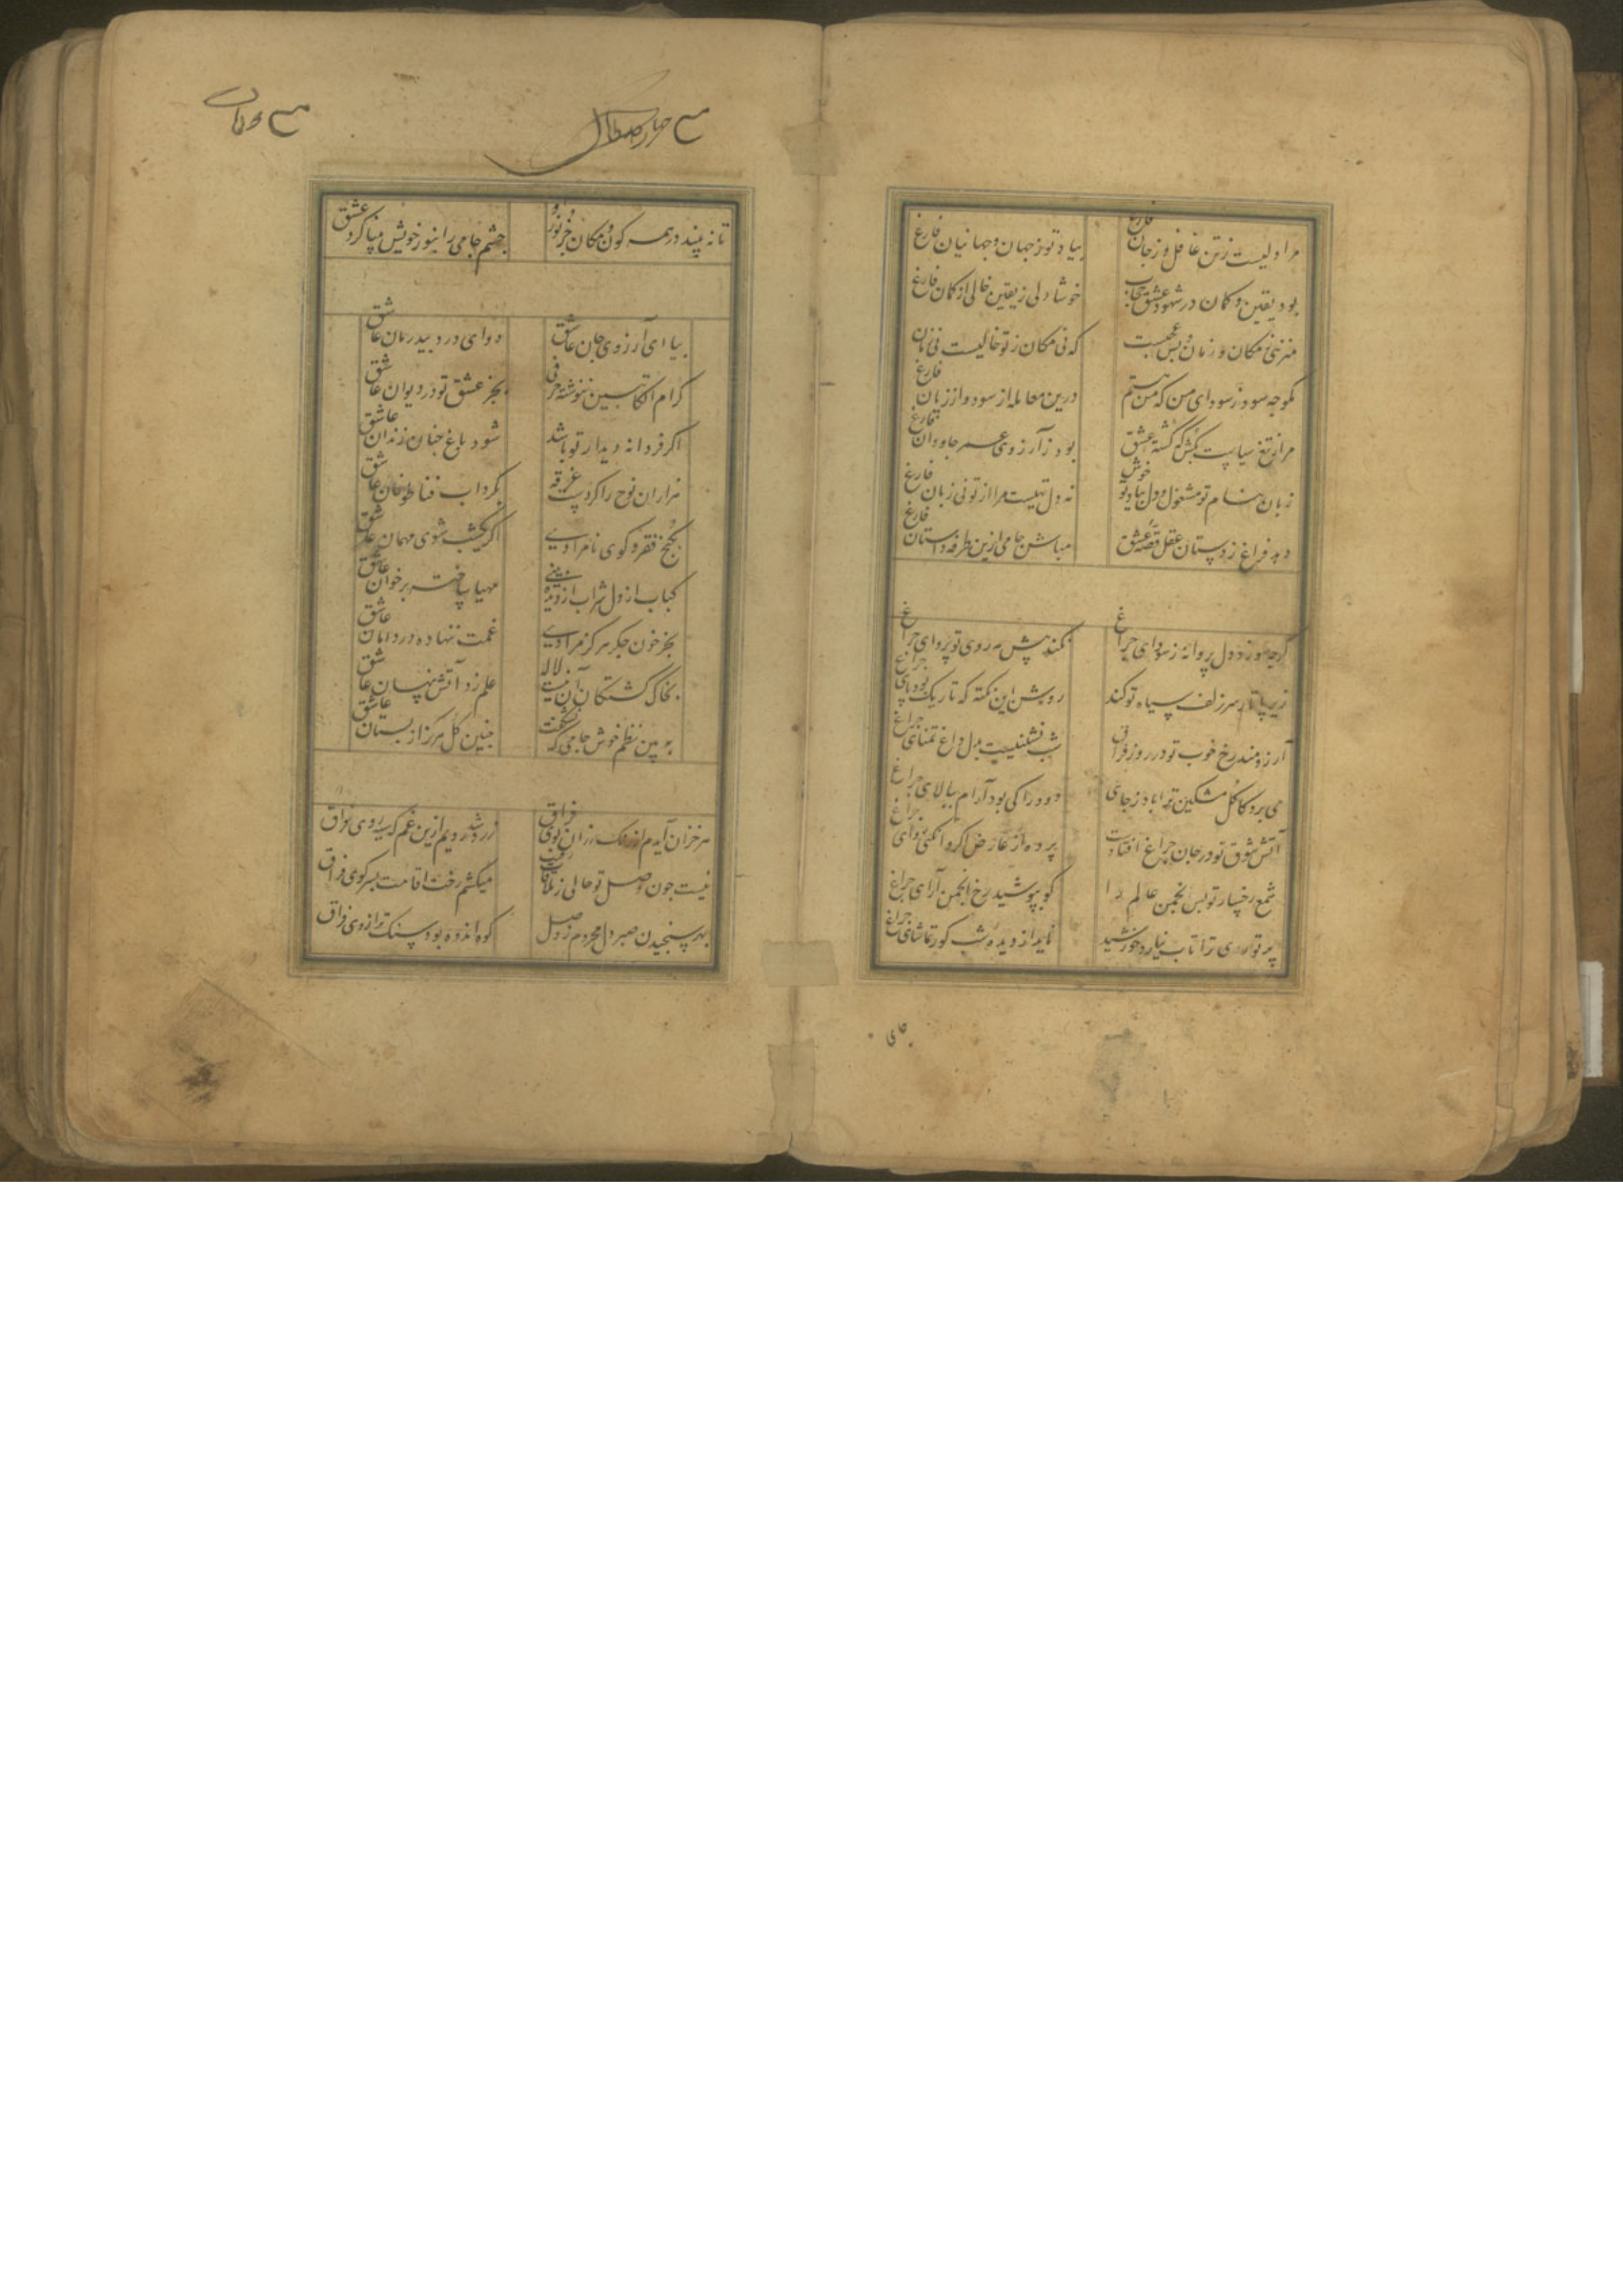 مرا دلیست ز تن غافل و ز جان فارغ
بیاد تو ز جهان و جهانیان فارغ
بود یقین و کمان در شهود عشق حجاب
خوشا دلی ز یقین خالی از کمان فارغ
منزهی ز مکان و زمان و بس عجبست
که نی مکان ز تو خالیست نی زمان فارغ
مکوچه سود ز سودای من که من هستم
درین معامله از سود و از زیان فارغ
مرا بتیغ سیاست بکش که کشته عشق
بود ز آرزوی عمر جاودان فارغ
زبان بنام تو مشغول و دل بیاد تو خوش
نه دل تهیست مرا از تو نی زبان فارغ
دهد فراغ ز دستان عقل قصه عشق
مباش جامی ازین طرفه داستان فارغ
کرچه سوزد دل پروانه ز سودای چراغ
نکند پیش مه روی تو پروای چراغ
زیر پا تا سر زلف سیاه تو کند
روشن این نکته که تاریک بود پای چراغ
آرزومند رخ خوب تو در روز فراق
شب نشینیست بدل داغ تمنای چراغ
می برد کاکل مشکین ترا باد ز جای
دود را کی بود آرام ببالای چراغ
آتش شوق تو در جان چراغ افتادست
پرده از عارض اکر وانکنی وای چراغ
شمع رخسار تو بس انجمن عالم را
کو بپوشید رخ انجمن آرای چراغ
پرتو روی ترا تاب نیارد خورشید
ناید از دیده شب کور تماشای چراغ
تا نه بیند در همه کون و مکان جز نور او
چشم جامی را بنور خویش بینا کرد عشق
بیا ای آرزوی جان عاشق
دوای درد بیدرمان عاشق
کرام الکاتبین ننوشته حرفی
بجز عشق تو در دیوان عاشق
اکر فردا نه دیدار تو باشد
شود باغ جنان زندان عاشق
هزاران نوح را کردست غرقه
بکرداب فنا طوفان عاشق
بکنج فقر و کوی نامرادی
اکر یکشب شوی مهمان عاشق
کباب از دل شراب از دیده بینی
مهیا ساخته بر خوان عاشق
بجز خون جکر هرکز مرادی
غمت ننهاده در دامان عاشق
بخاک کشتکان آن نیست لاله
علم زد آتش پنهان عاشق
به بین نظم خوش جامی که نشکفت
چنین کل هرکز از بستان عاشق
هر خزان آیدم از رنک رزان بوی فراق
زرد شد رویم ازین غم که سیه روی فراق
نیست چون وصل تو خالی ز ملاقات رقیب
میکشم رخت اقامت بسر کوی فراق
بهر سنجیدن صبر دل محروم ز وصل
کوه اندوه بود سنک ترازوی فراق